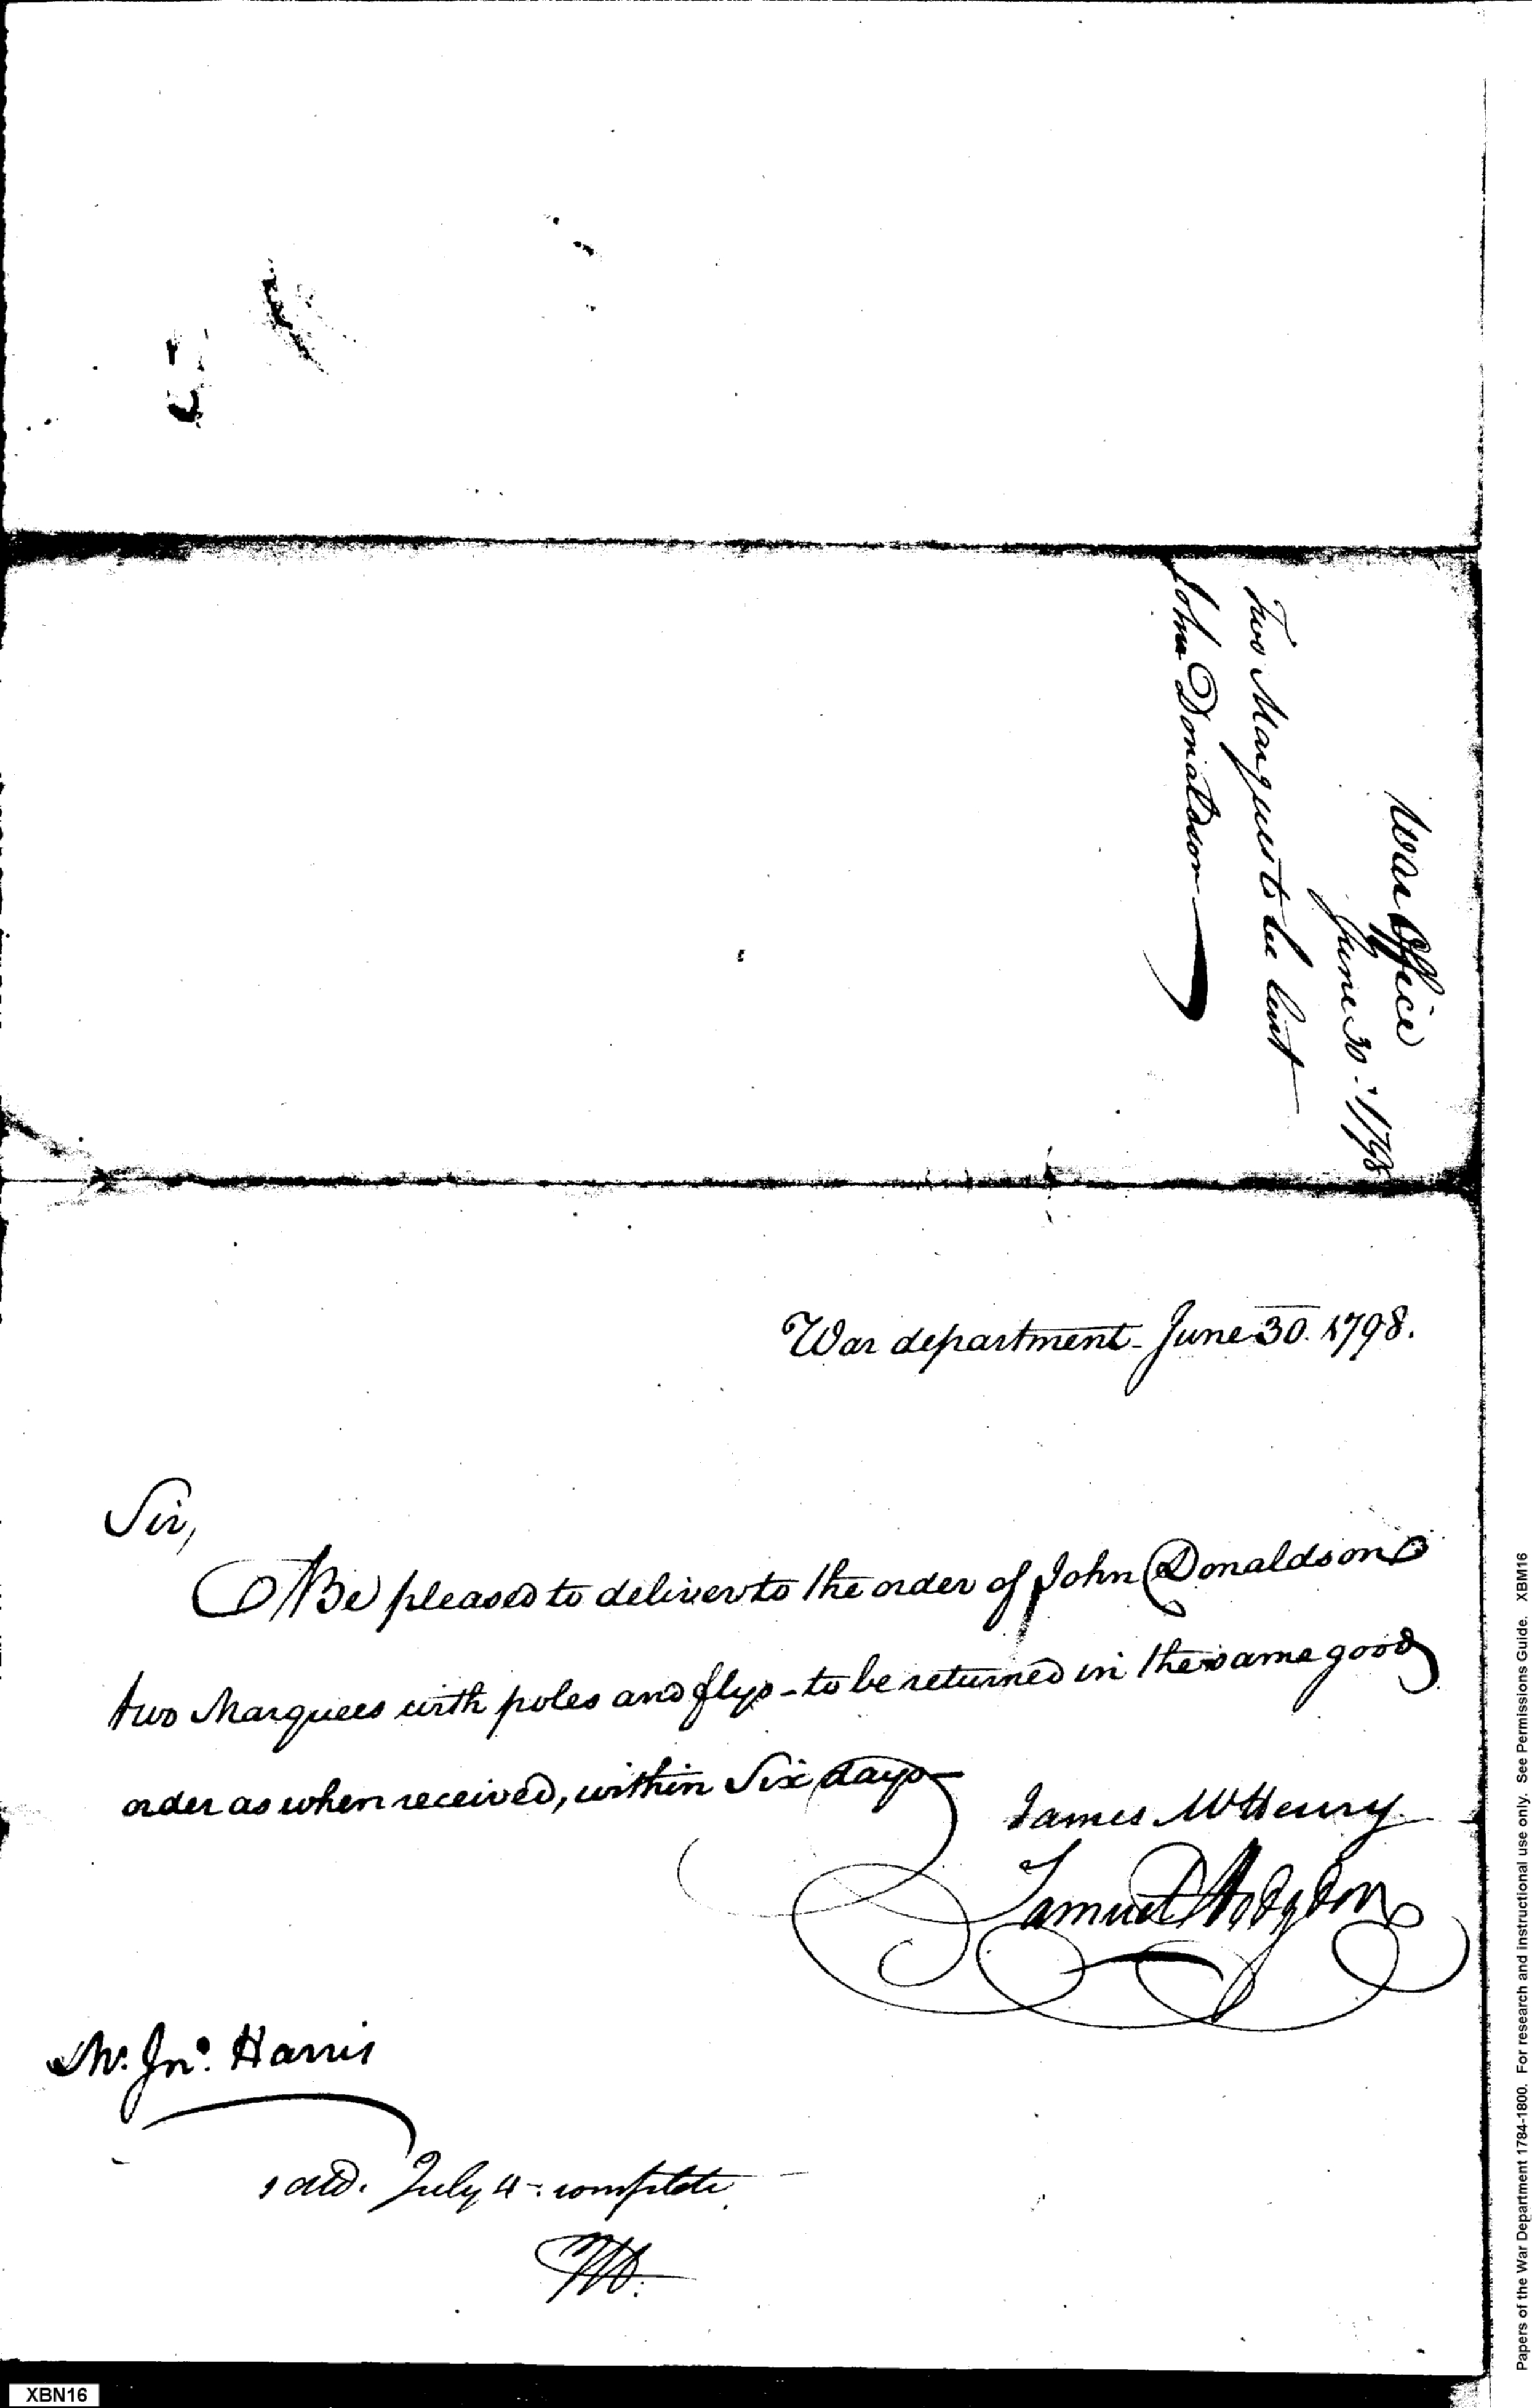 War Office
June 30 - 1798
Two Marquees to be lent
John Donaldson
War department - June 30. 1798.
Sir,
Be pleased to deliver to the order of John Donaldson
two Marquees with poles and flys - to be returned in the same good
order as when received, within Six days -
James McHenry
Samuel Hodgdon
Mr. Jno. Harris
July 4 - complete
Papers of the War Department 1784-1800. For research and instructional use only. See Permissions Guide. XBM16
XBN16